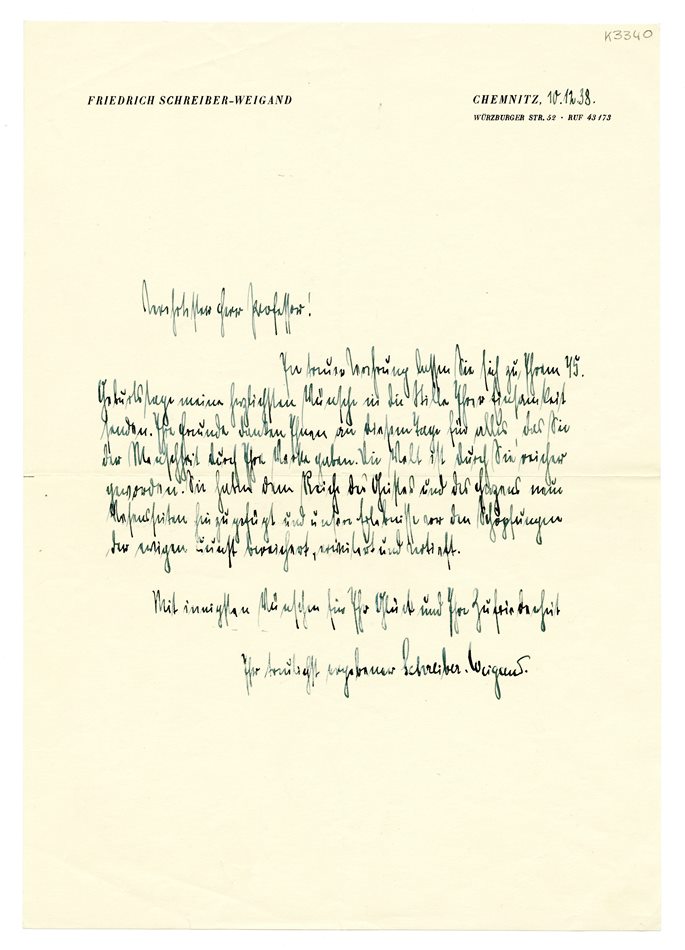 K3340
FRIEDRICH SCHREIBER-WEIGAND
CHEMNITZ, 10.12.38.
WÜRZBURGER STR. 52 · RUF 43173
Verehrtester Herr Professor!
In treuer Verehrung lassen Sie sich zu Ihrem 75.
Geburtstage meine herzlichsten Wünsche in die Stille Ihrer Einsamkeit
senden. Ihre Freunde danken Ihnen an diesem Tage für alles das Sie
der Menschheit durch Ihre Werke gaben. Die Welt ist durch Sie reicher
geworden. Sie haben dem Reich des Geistes und des Herzens neue
Wesenheiten hinzugefügt und unsere Erlebnisse vor den Schöpfungen
der ewigen Kunst bereichert, erweitert und vertieft.
Mit innigsten Wünschen für Ihr Glück und Ihre Zufriedenheit
Ihr treulichst ergebener Schreiber-Weigand.